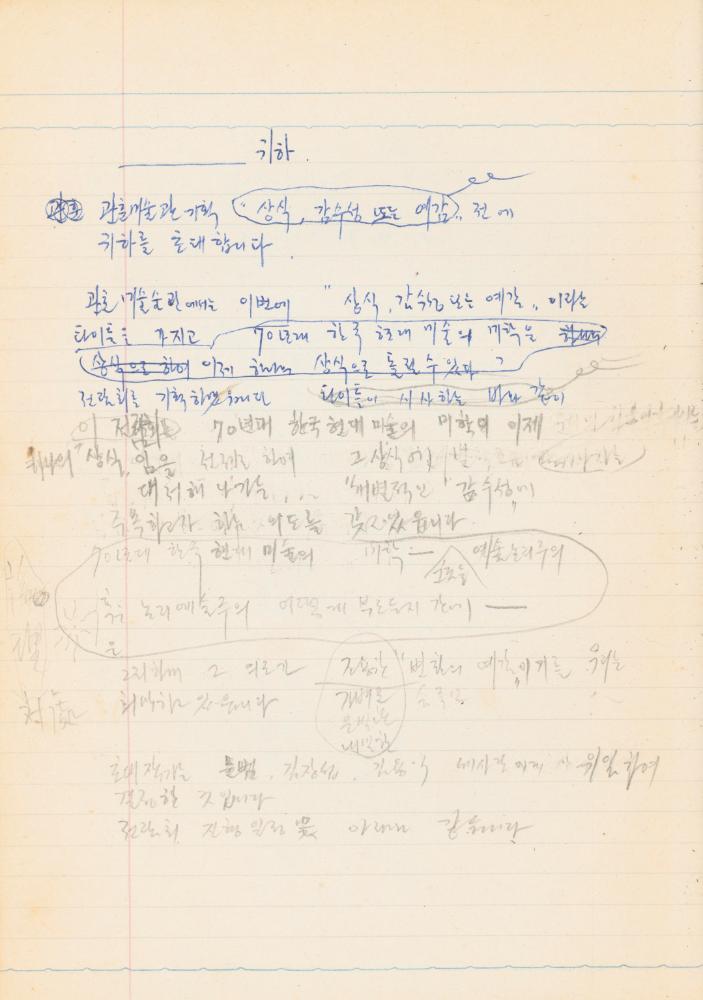 귀하.
관훈미술관 기획 "상식, 감수성 또는 예감" 전에
귀하를 초대합니다
관훈미술관에서는 이번에 "상식, 감수성 또는 예감" 이라는
타이틀을 가지고 70년대 한국 현대 미술의 미학을
상식으로 하여 이제 하나의 상식으로 돌릴 수 있다
전람회를 기획하였읍니다 타이틀이 시사하는 바와 같이
이 전람회는 70년대 한국 현대미술의 미학이 이제
하나의 "상식"임을 전제로 하여 그 상식에
대처해 나가는 "개별적인" "감수성"에
주목하고자 하는 의도를 갖고 있읍니다.
70년대 한국 현대 미술의 미학 — 예술논리주의
혹은 논리예술주의 어떻게 부르든지 간에 —
을
그리하여 그 의도가 조용한 "변화의 예감"이기를 우리는
희망하고 있읍니다
초대작가는 문범, 김장섭, 김용익 세사람에게 위임하여
결정한 것입니다
전람회 진행 일정 아래와 같습니다